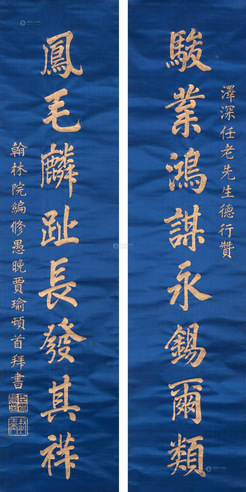 澤深任老先生德行贊
駿業鴻謀永錫爾類
鳳毛麟趾長發其祥
翰林院編修愚晚賈瑜頓首拜書